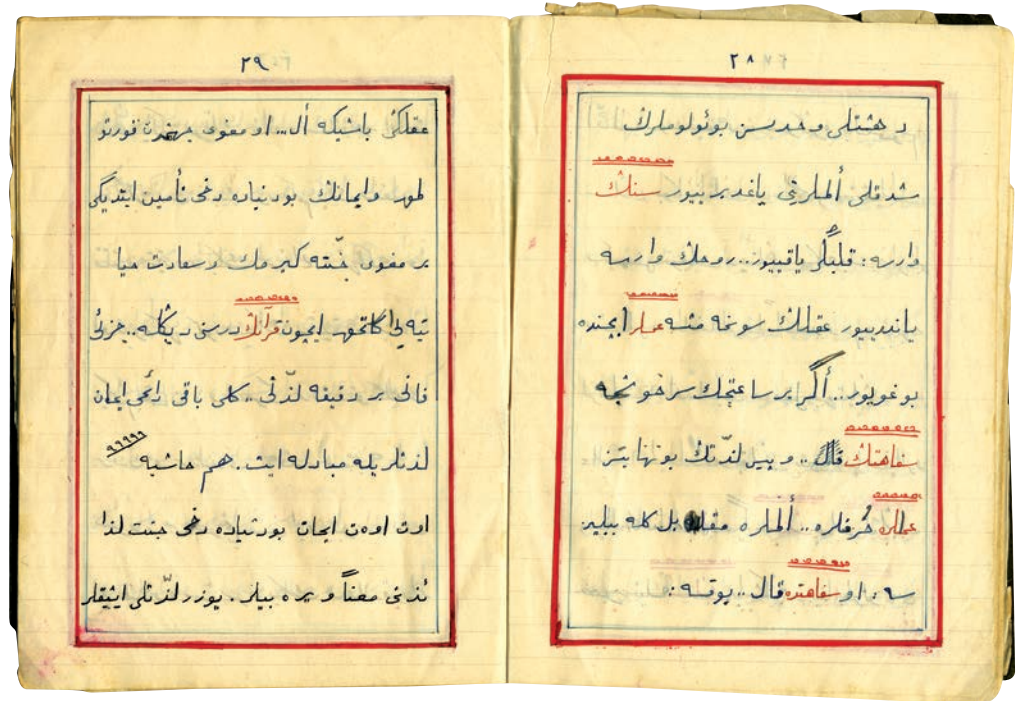 ٢٨
دهشتلی وحدسز بوئولوملرڭ
شدتلی ألملرینی یاغدیرییور سنڭ
وارسه: قلبڭی یاقییور.. روحڭ وارسه
یاندیرییور عقلڭ سونمه‌مشسه عملر ایچنده
بوغویور.. أگر بر ساعتجك سرخوشجه
سفاهتڭ .. و بر لذّتڭ بونهایتسز
عملره حُزنلره.. ألملره مقابل گله بیلیر
سه: او سفاهتده قال.. یوقسه:
٢٩
عقلڭی باشیڭه أل... او معنوی جهنمدن قورتو
لمق وایمانڭ بو دنیاده دخی تأمین ایتدیگی
بر معنوی جنّته گیرمك و سعادت حیا
تیه‌یی طاتمق ایچون قرآنڭ درسنی دیڭله.. جزئی
فانی بر دقیقه لذّتی.. کلی باقی دائمی ایمان
لذتلریله مبادله ایت. هم حاشیه
اوت اوت ایمان بو دنیاده دخی جنت لذا
ئذنی معناً ویره بیلر. یوزر لذّتلی ایشیقلر